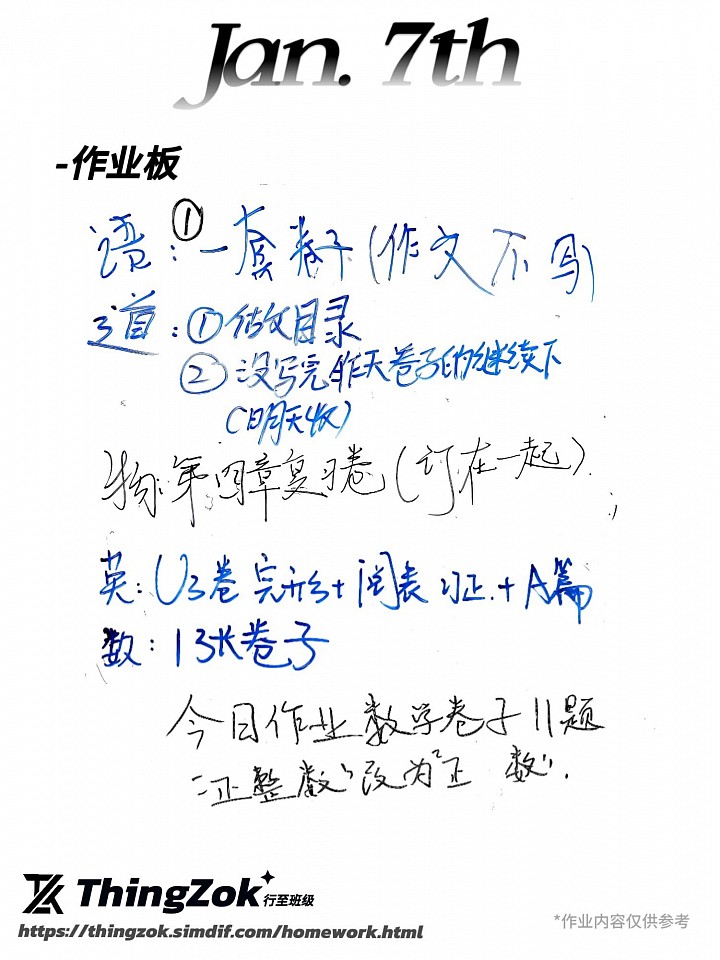 Jan. 7th
-作业板
语:①一套卷子(作文不写)
道:①做目录
②没写完昨天卷子的继续下
(明天收)
物:第四章复习卷(订在一起)
英:U3卷 完形+阅表 + A篇
数:1张卷子
今日作业数学卷子11题
"正整数"改为"正 数".
ThingZok
行至班级
https://thingzok.simdif.com/homework.html
*作业内容仅供参考